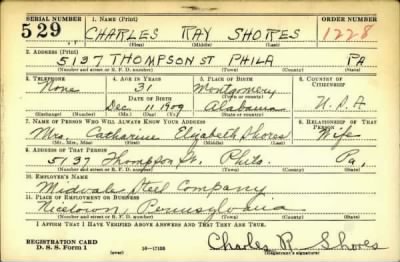 SERIAL NUMBER 1. NAME (Print) ORDER NUMBER
529 CHARLES RAY SHORES 1228
(First) (Middle) (Last)
2. ADDRESS (Print)
5137 THOMPSON ST PHILA PA
(Number and street or R. F. D. number) (Town) (County) (State)
3. TELEPHONE 4. AGE IN YEARS 5. PLACE OF BIRTH 6. COUNTRY OF CITIZENSHIP
None 31 Montgomery
DATE OF BIRTH (Town or county)
Dec 11 1909 Alabama U.S.A
(Mo.) (Day) (Yr.) (State or country)
7. NAME OF PERSON WHO WILL ALWAYS KNOW YOUR ADDRESS 8. RELATIONSHIP OF THAT PERSON
Mrs. Catharine Elizabeth Shores Wife
(Mr., Mrs., Miss) (First) (Middle) (Last)
9. ADDRESS OF THAT PERSON
5137 Thompson St. Phila. Pa.
(Number and street or R. F. D. number) (Town) (County) (State)
10. EMPLOYER'S NAME
Midvale Steel Company
11. PLACE OF EMPLOYMENT OR BUSINESS
Nicetown, Pennsylvania
(Number and street or R. F. D. number) (Town) (County) (State)
I AFFIRM THAT I HAVE VERIFIED ABOVE ANSWERS AND THAT THEY ARE TRUE.
REGISTRATION CARD
D. S. S. Form 1 (over) 16—17105 Charles R. Shores
(Registrant's signature)